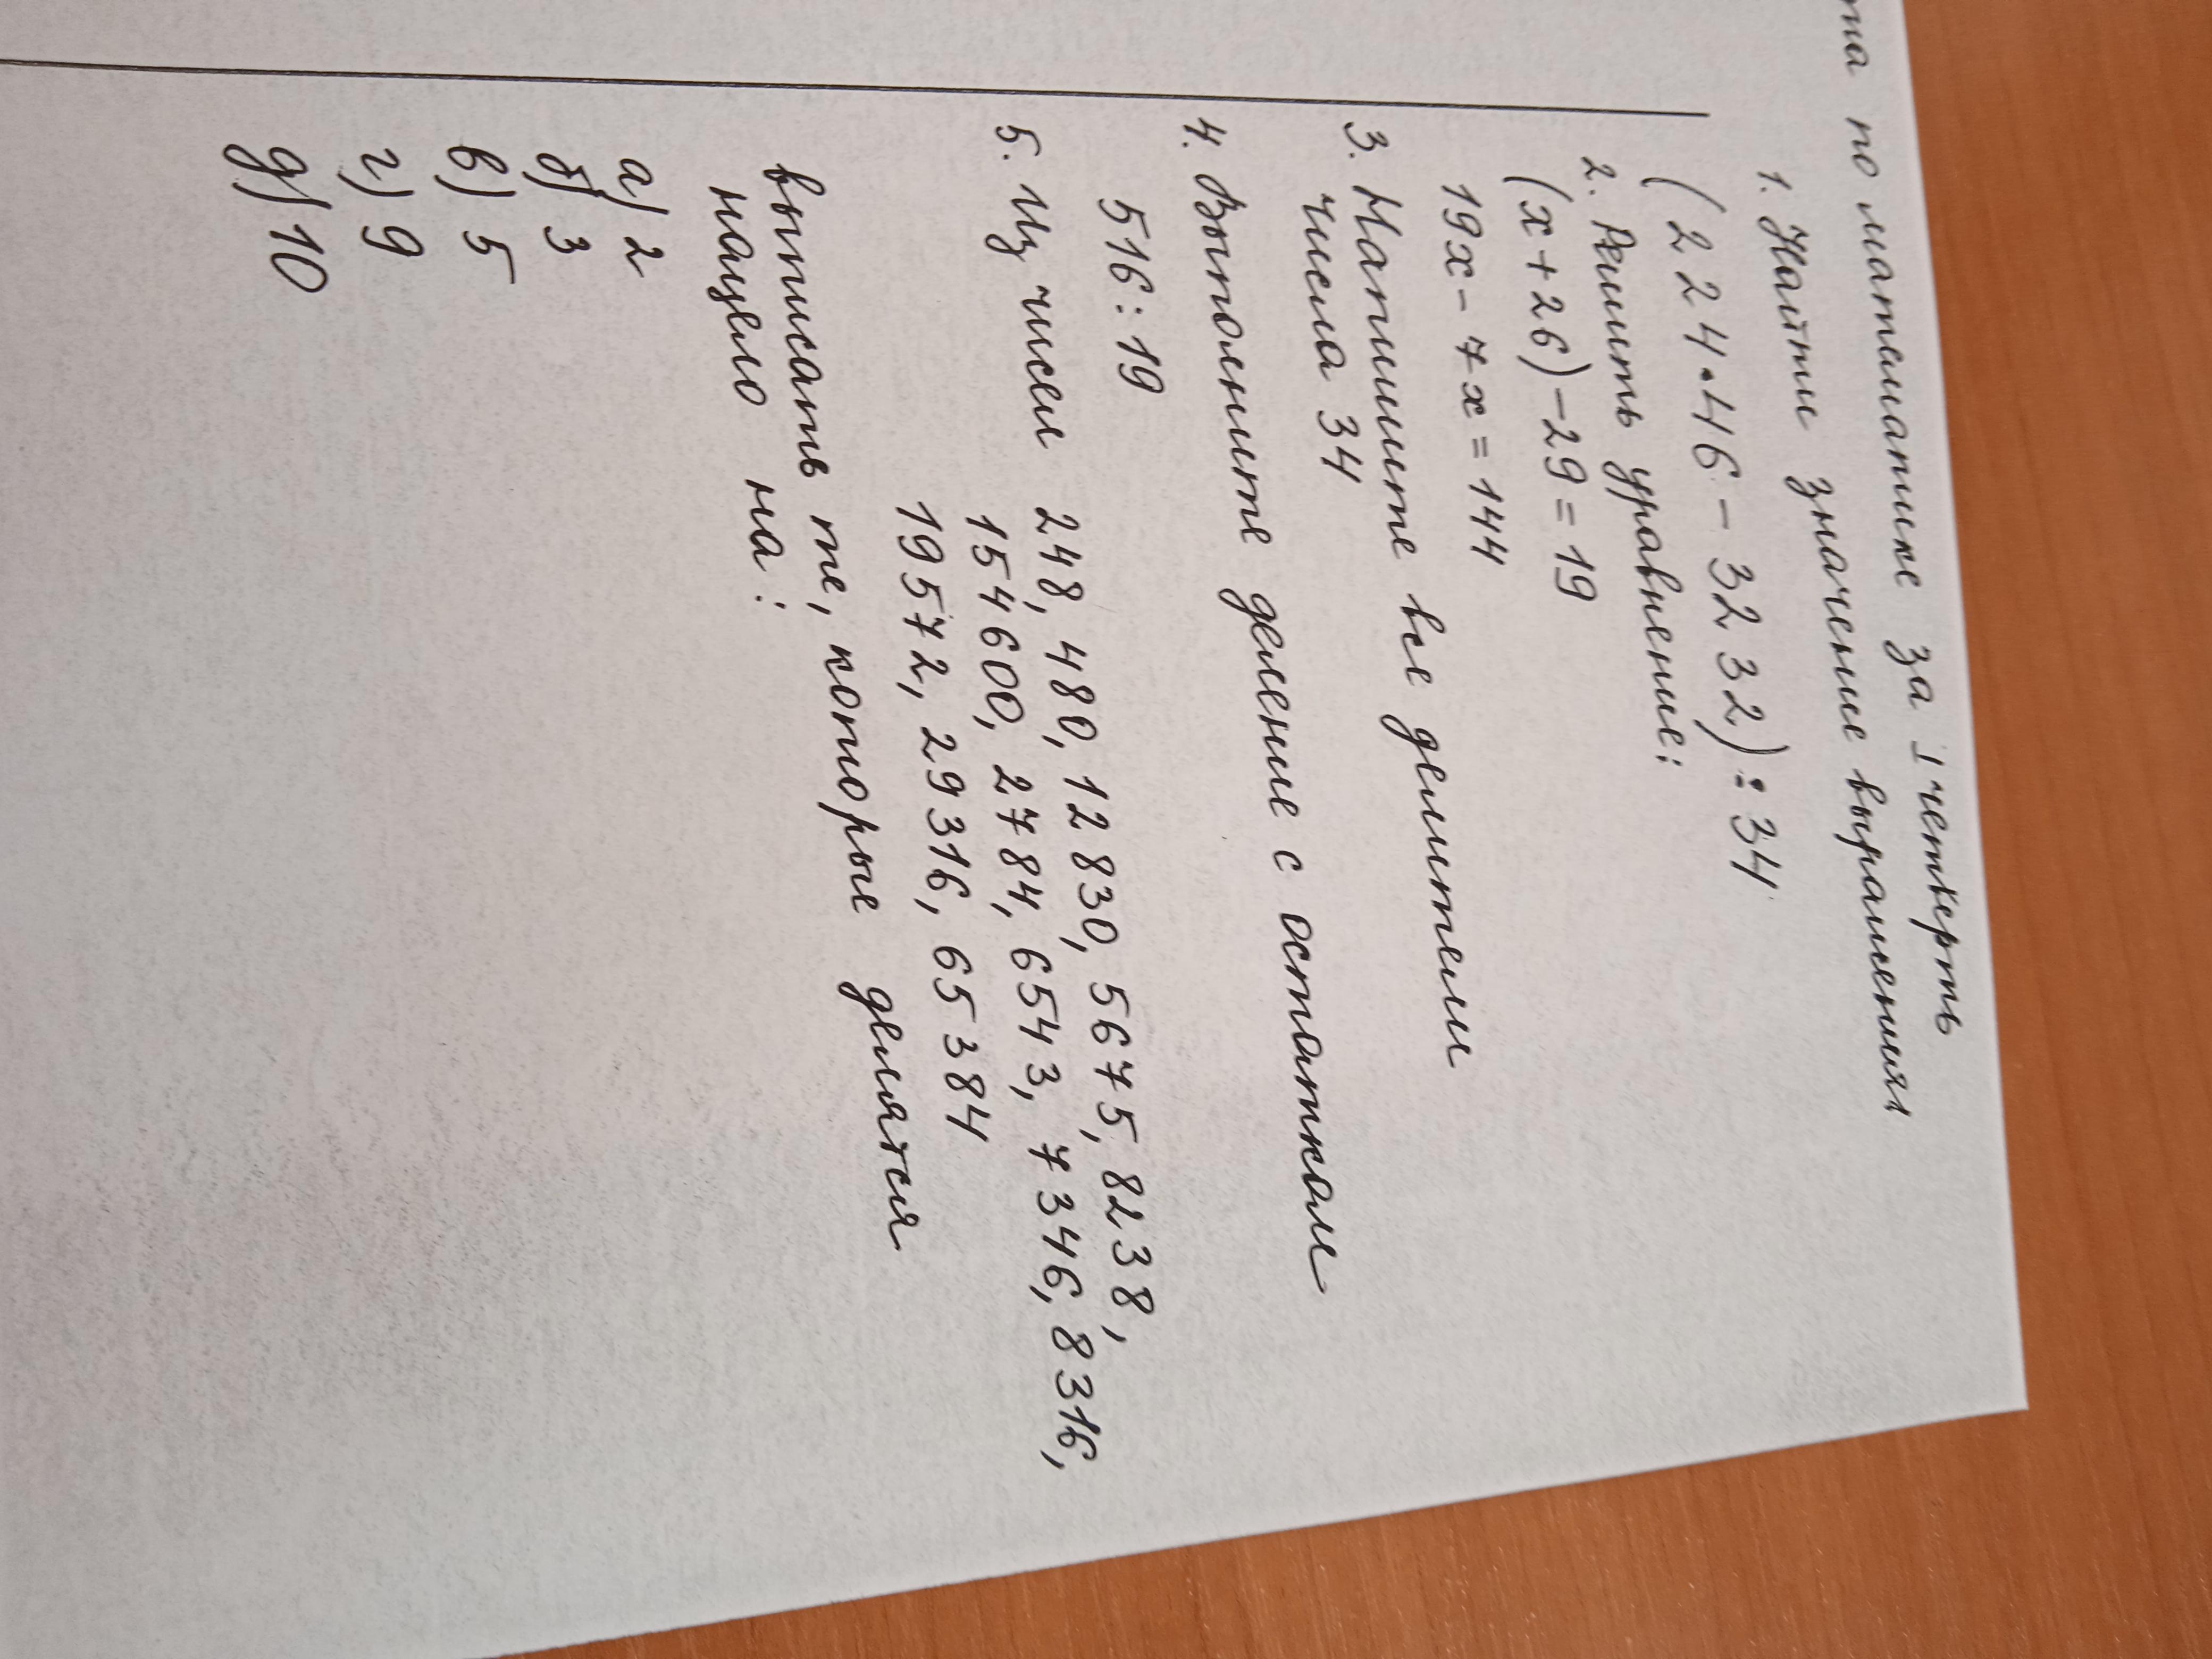 по математике за I четверть
1. Найти значение выражения
(224·46 - 3232):34
2. Решить уравнение:
(x+26)-29=19
19x-7x=144
3. Напишите все делители
числа 34
4. Выполните деление с остатком
516:19
5. Из чисел 248, 480, 12830, 5675, 8238,
154600, 2784, 6543, 7346, 8316,
19572, 29316, 65384
выписать те, которые делятся
нацело на:
а) 2
б) 3
в) 5
г) 9
д) 10